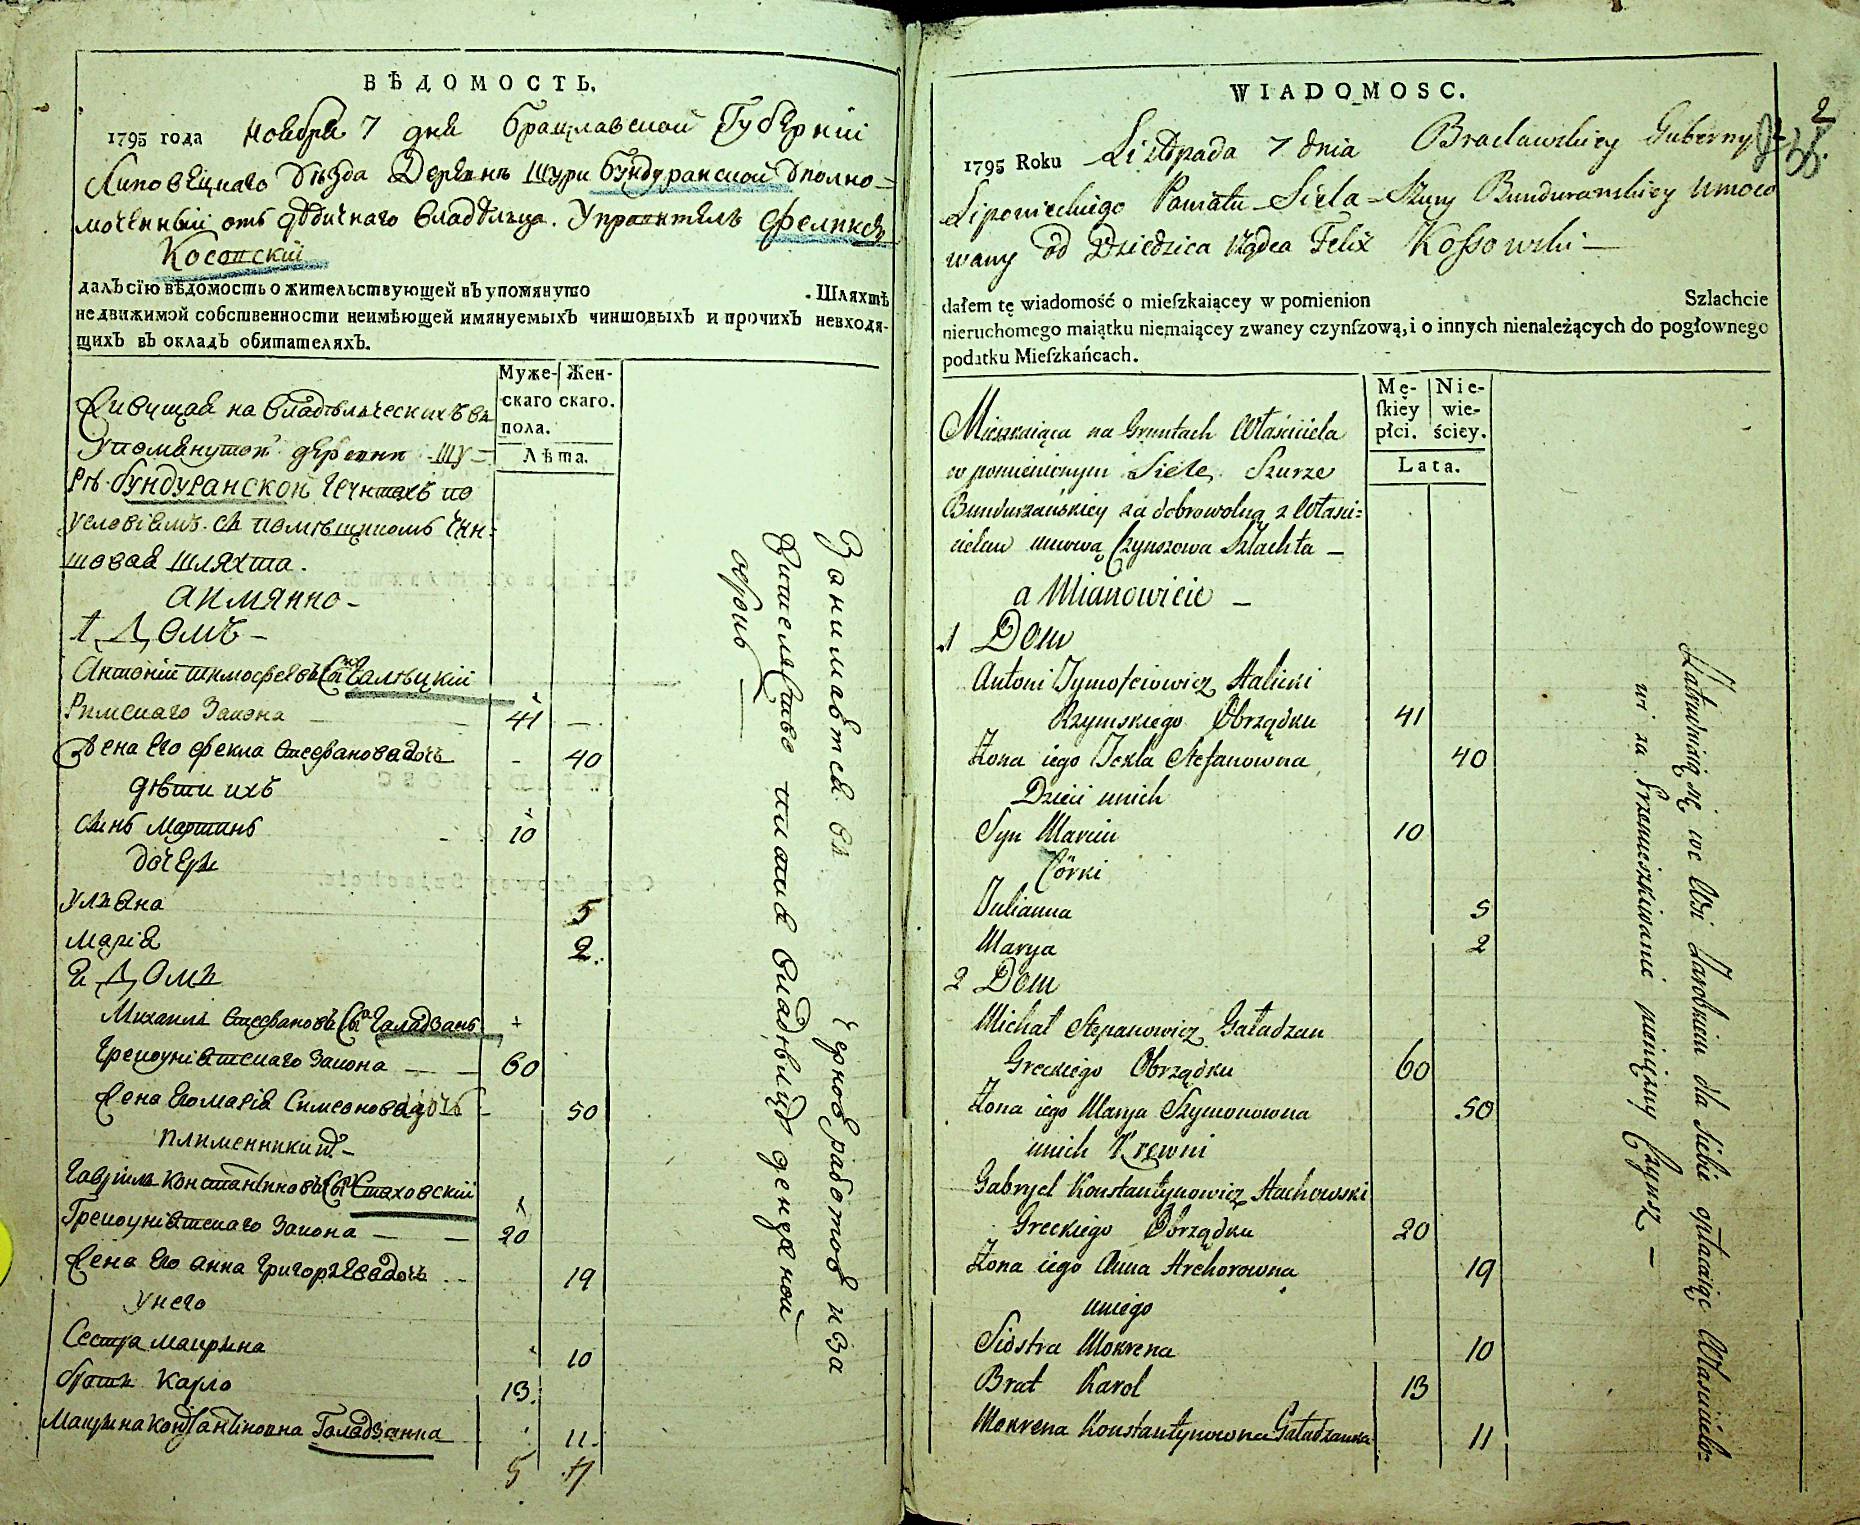 ВѢДОМОСТЬ.
1795 года Ноября 7 дня Брацлавской Губерніи
Липовецкаго Уѣзда Деревнѣ Щури Бундуранской Уполно=
моченный отъ дѣдичнаго владѣльца. Управитель Феликсъ
Косовскій
далЪ сїю вѣдомость о жительствующей вЪ упомянуто . Шляхтѣ
недвижимой собственности неимѣющей имянуемыхЪ чиншовыхЪ и прочихЪ невходя-
щихЪ вЪ окладЪ обитателяхЪ.
Муже- Жен-
скаго скаго.
пола.
Лѣта.
Живущая на владѣльческихъ въ
упомянутой деревни Щу=
рѣ Бундуранской грунтахъ по
условіямъ съ помѣщикомъ чин=
шовая шляхта.
а имянно -
1 Домъ -
Антоній Тимофеевъ Сынъ Галѣцкій
Римскаго Закона 41 —
Жена его Фекла Стефанова дочь - 40
дѣти ихъ
сынъ Мартинъ 10
дочери
Ульяна 5
Марія 2.
2 Домъ
Михаилъ Стефановъ Сынъ Галадзанъ
Грекоуніятскаго Закона — 60
Жена его Марія Симеонова дочь 50
племенники
Гавріилъ Константиновъ Сынъ Стаховскій
Грекоуніятскаго Закона — 20
Жена его Анна Григорьева дочь 19
у него
Сестра Макрына 10
братъ Карло 13.
Макрына Константиновна Галадзанна 11.
5 7
Занимается въ черной работою и за
жительство платя владѣльцу денежной
оброкъ —
WIADOMOSC.
2
1795 Roku Listopada 7 dnia Bracławskiey Guberny
Lipowieckiego Powiatu Sieła Szury Bunduranskiey Umoco
wany od Dziedzica Rządca Felix Kossowski —
dałem tę wiadomość o mieſzkaiącey w pomienion Szlachcie
nieruchomego maiątku niemaiącey zwaney czynſzową, i o innych nienależących do pogłownego
podatku Mieſzkańcach.
Mę- Nie-
ſkiey wie-
płci. ściey.
Lata.
Mieszkaiąca na Gruntach Właściciela
w pomienionym Siele Szurze
Bundurzańskiey za dobrowolną z Własci=
cielem umową Czynszowa Szlachta —
a Mianowicie —
1 Dom
Antoni Tymofeiowicz Halicki
Rzymskiego Obrządku 41
Żona iego Tekla Stefanowna 40
Dzieci u nich
Syn Marcin 10
Córki
Julianna 5
Marya 2
2 Dom
Michał Stepanowicz Gaładzan
Greckiego Obrządku 60
Żona iego Marya Szymonowna 50
u nich Krewni
Gabryel Konstantynowicz Stachowski
Greckiego Obrządku 20
Żona iego Anna Hrehorowna 19
u niego
Siostra Mokrena 10
Brat Karol 13
Mokrena Konstantynowna Gaładzanka 11
Zatrudniaią się we Wsi Zarobkiem dla siebie opłacaiąc Właścicielo=
wi za Przemieszkiwanie pieniężny Czynsz —